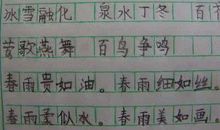 冰雪融化 泉水丁冬 百
莺歌燕舞 百鸟争鸣
春雨贵如油。春雨细如丝。
春雨柔似水。春雨美如画。